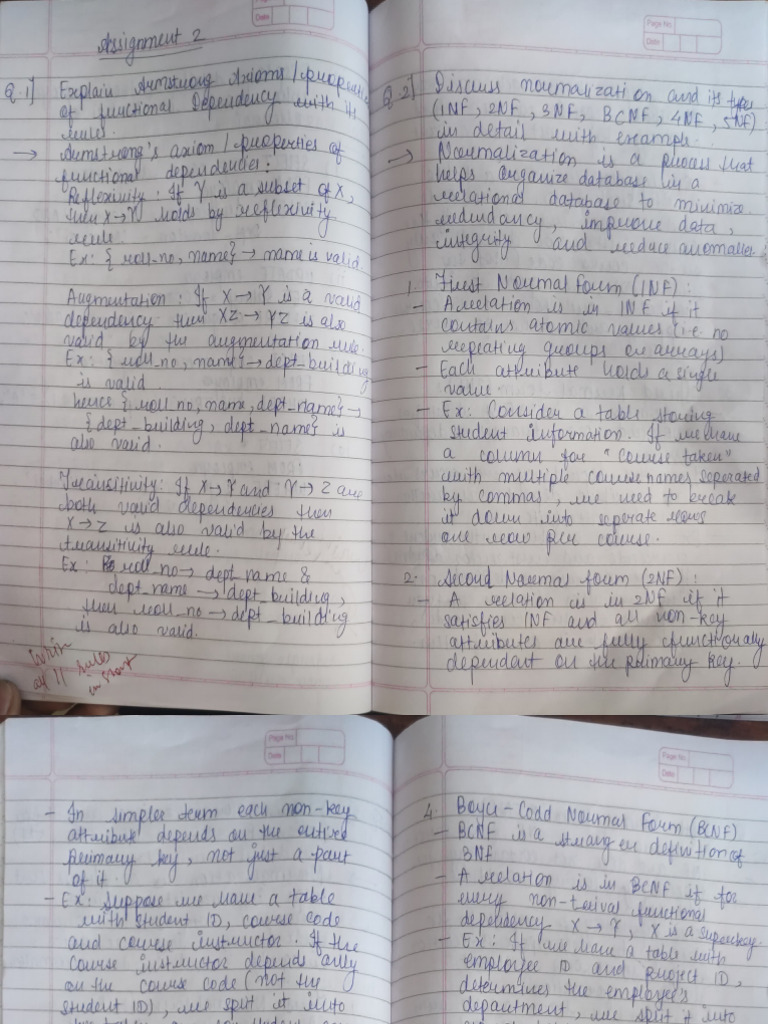 Assignment 2
Q.1] Explain Armstrong Axioms / properties
of functional Dependency with its
rules.
→ Armstrong's axiom / properties of
functional dependencies:
Reflexivity: If Y is a subset of X,
then X→Y holds by reflexivity
rule.
Ex: { roll_no, name} → name is valid
Augmentation: If X→Y is a valid
dependency then XZ→YZ is also
valid by the augmentation rule.
Ex: { roll_no, name} → dept_building
is valid.
hence { roll_no, name, dept_name} →
{dept_building, dept_name} is
also valid.
Transitivity: If X→Y and Y→Z are
both valid dependencies then
X→Z is also valid by the
transitivity rule.
Ex: roll_no → dept_name &
dept_name → dept_building,
then roll_no → dept_building
is also valid.
all rules
in short
Page No.
Date
Q.2] Discuss normalization and its types
(1NF, 2NF, 3NF, BCNF, 4NF, 5NF)
in detail with example.
→ Normalization is a process that
helps organize database in a
relational database to minimize
redundancy, improve data,
integrity and reduce anomalies.
1. First Normal Form (1NF):
- A relation is in 1NF if it
contains atomic values (i.e. no
repeating groups or arrays)
- Each attribute holds a single
value.
- Ex: Consider a table storing
student information. If we have
a column for "course taken"
with multiple course names seperated
by commas, we need to break
it down into seperate rows
one row per course.
2. Second Normal form (2NF):
- A relation is in 2NF if it
satisfies 1NF and all non-key
attributes are fully functionally
dependent on the primary key.
Page No.
Date
- In simpler term each non-key
attribute depends on the entire
primary key, not just a part
of it.
- Ex: Suppose we have a table
with student ID, course code
and course instructor. If the
course instructor depends only
on the course code (not the
student ID), we split it into
Page No.
Date
4. Boyce-Codd Normal Form (BCNF)
- BCNF is a stronger definition of
3NF
- A relation is in BCNF if for
every non-terival functional
dependency X→Y, X is a superkey.
- Ex: If we have a table with
employee ID and project ID,
determines the employee's
department, we split it into